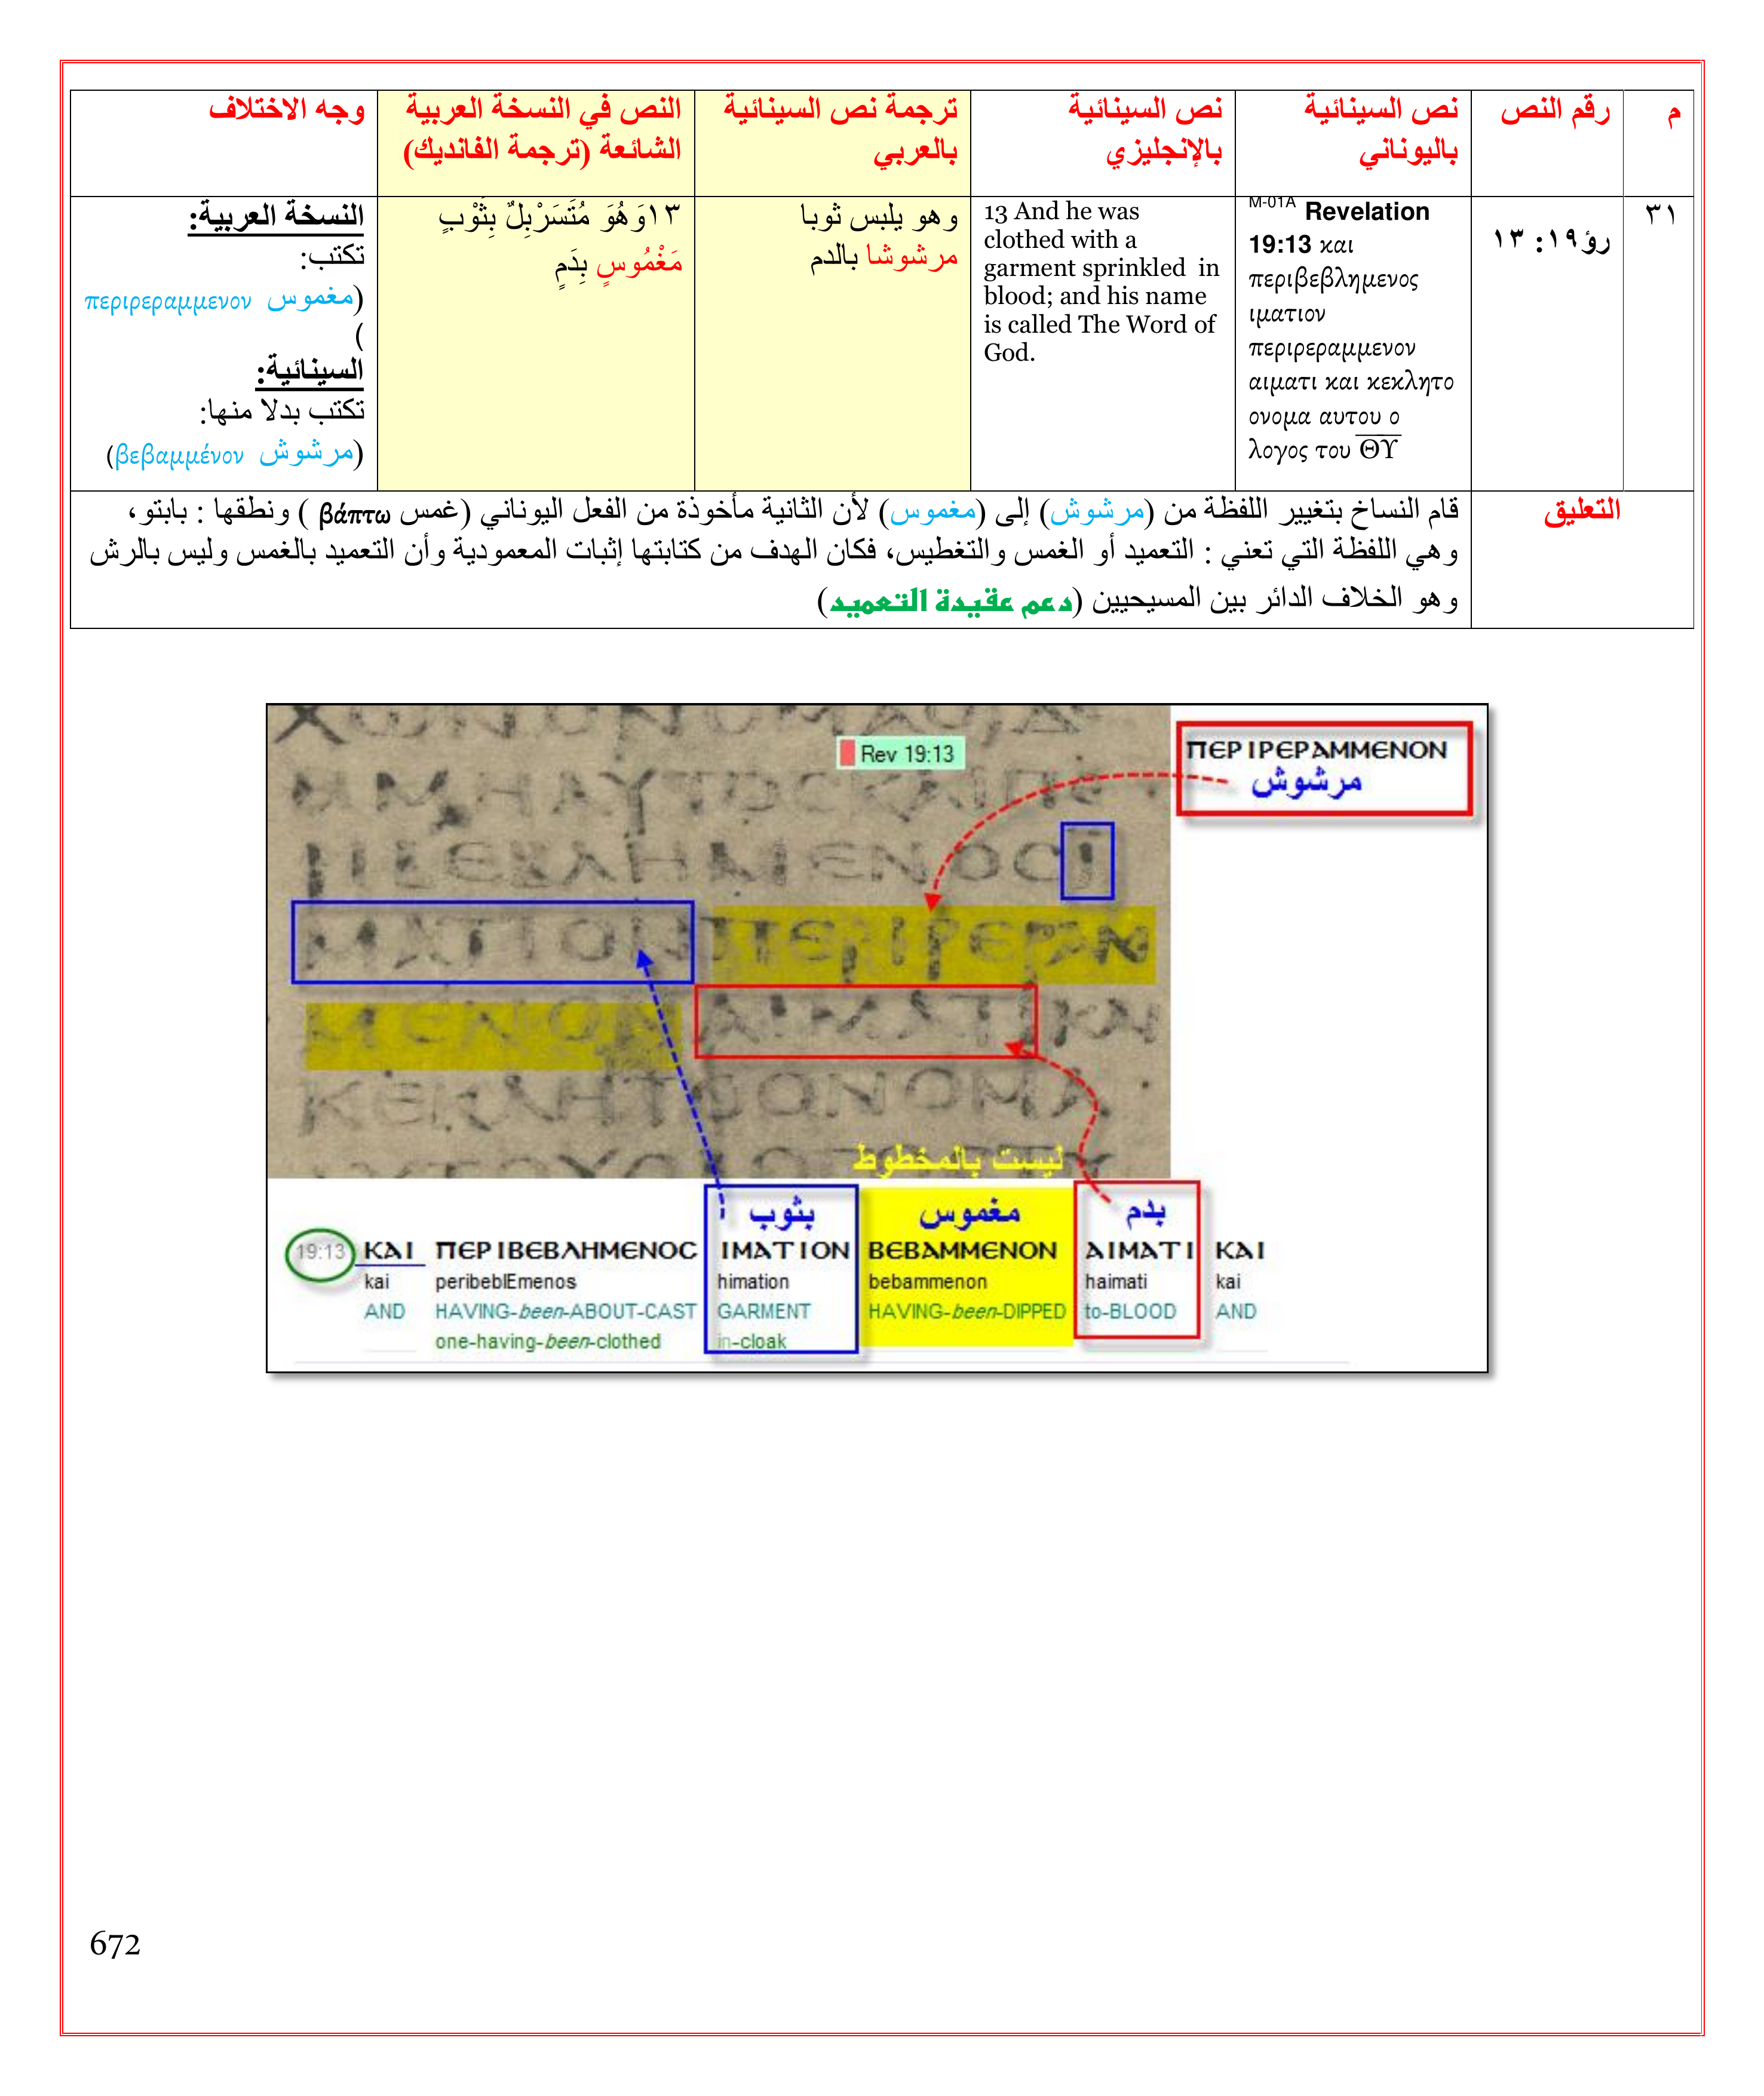 م
رقم النص
نص السينائية
باليوناني
نص السينائية
بالإنجليزي
ترجمة نص السينائية
بالعربي
النص في النسخة العربية
الشائعة (ترجمة الفانديك)
وجه الاختلاف
٣١
رؤ١٩: ١٣
M-01A Revelation
19:13 και
περιβεβλημενος
ιματιον
περιρεραμμενον
αιματι και κεκλητο
ονομα αυτου ο
λογος του ΘΥ
13 And he was
clothed with a
garment sprinkled in
blood; and his name
is called The Word of
God.
وهو يلبس ثوبا
مرشوشا بالدم
١٣وَهُوَ مُتَسَرْبِلٌ بِثَوْبٍ
مَغْمُوسٍ بِدَمٍ
النسخة العربية:
تكتب:
(مغموس περιρεραμμενον
)
السينائية:
تكتب بدلا منها:
(مرشوش βεβαμμένον)
التعليق
قام النساخ بتغيير اللفظة من (مرشوش) إلى (مغموس) لأن الثانية مأخوذة من الفعل اليوناني (غمس βάπτω ) ونطقها : بابتو،
وهي اللفظة التي تعني : التعميد أو الغمس والتغطيس، فكان الهدف من كتابتها إثبات المعمودية وأن التعميد بالغمس وليس بالرش
وهو الخلاف الدائر بين المسيحيين (دعم عقيدة التعميد)
Rev 19:13
ΠΕΡΙΡΕΡΑΜΜΕΝΟΝ
مرشوش
ΠΙΒΕΒΛΗΜΕΝΟCΙ
ΜΑΤΙΟΝΠΕΡΙΡΕΡΑΝ
ΜΕΝΟΝΑΙΜΑΤΙΚΑΙ
ΚΕΚΛΗΤΟΟΝΟΜΑ
ليست بالمخطوط
بثوب مغموس بدم
19:13 ΚΑΙ ΠΕΡΙΒΕΒΛΗΜΕΝΟC ΙΜΑΤΙΟΝ ΒΕΒΑΜΜΕΝΟΝ ΑΙΜΑΤΙ ΚΑΙ
kai peribeblEmenos himation bebammenon haimati kai
AND HAVING-been-ABOUT-CAST GARMENT HAVING-been-DIPPED to-BLOOD AND
one-having-been-clothed in-cloak
672